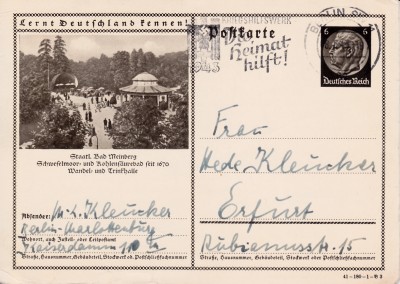 Lernt Deutschland kennen!
KRIEGSHILFSWERK
Die
Heimat
hilft!
1943
BERLIN
Postkarte
6 6
Deutsches Reich
Staatl. Bad Meinberg
Schwefelmoor- und Kohlensäurebad seit 1670
Wandel- und Trinkhalle
Absender: M. Kleucker
Berlin-Charlottenburg
Wohnort, auch Zustell- oder Leitpostamt
Kaiserdamm
Straße, Hausnummer, Gebäudeteil, Stockwerk od. Postschließfachnummer
Frau
Hede Kleucker
Erfurt
Rubianusstr. 15
Straße, Hausnummer, Gebäudeteil, Stockwerk od. Postschließfachnummer
41-180-1-B 3